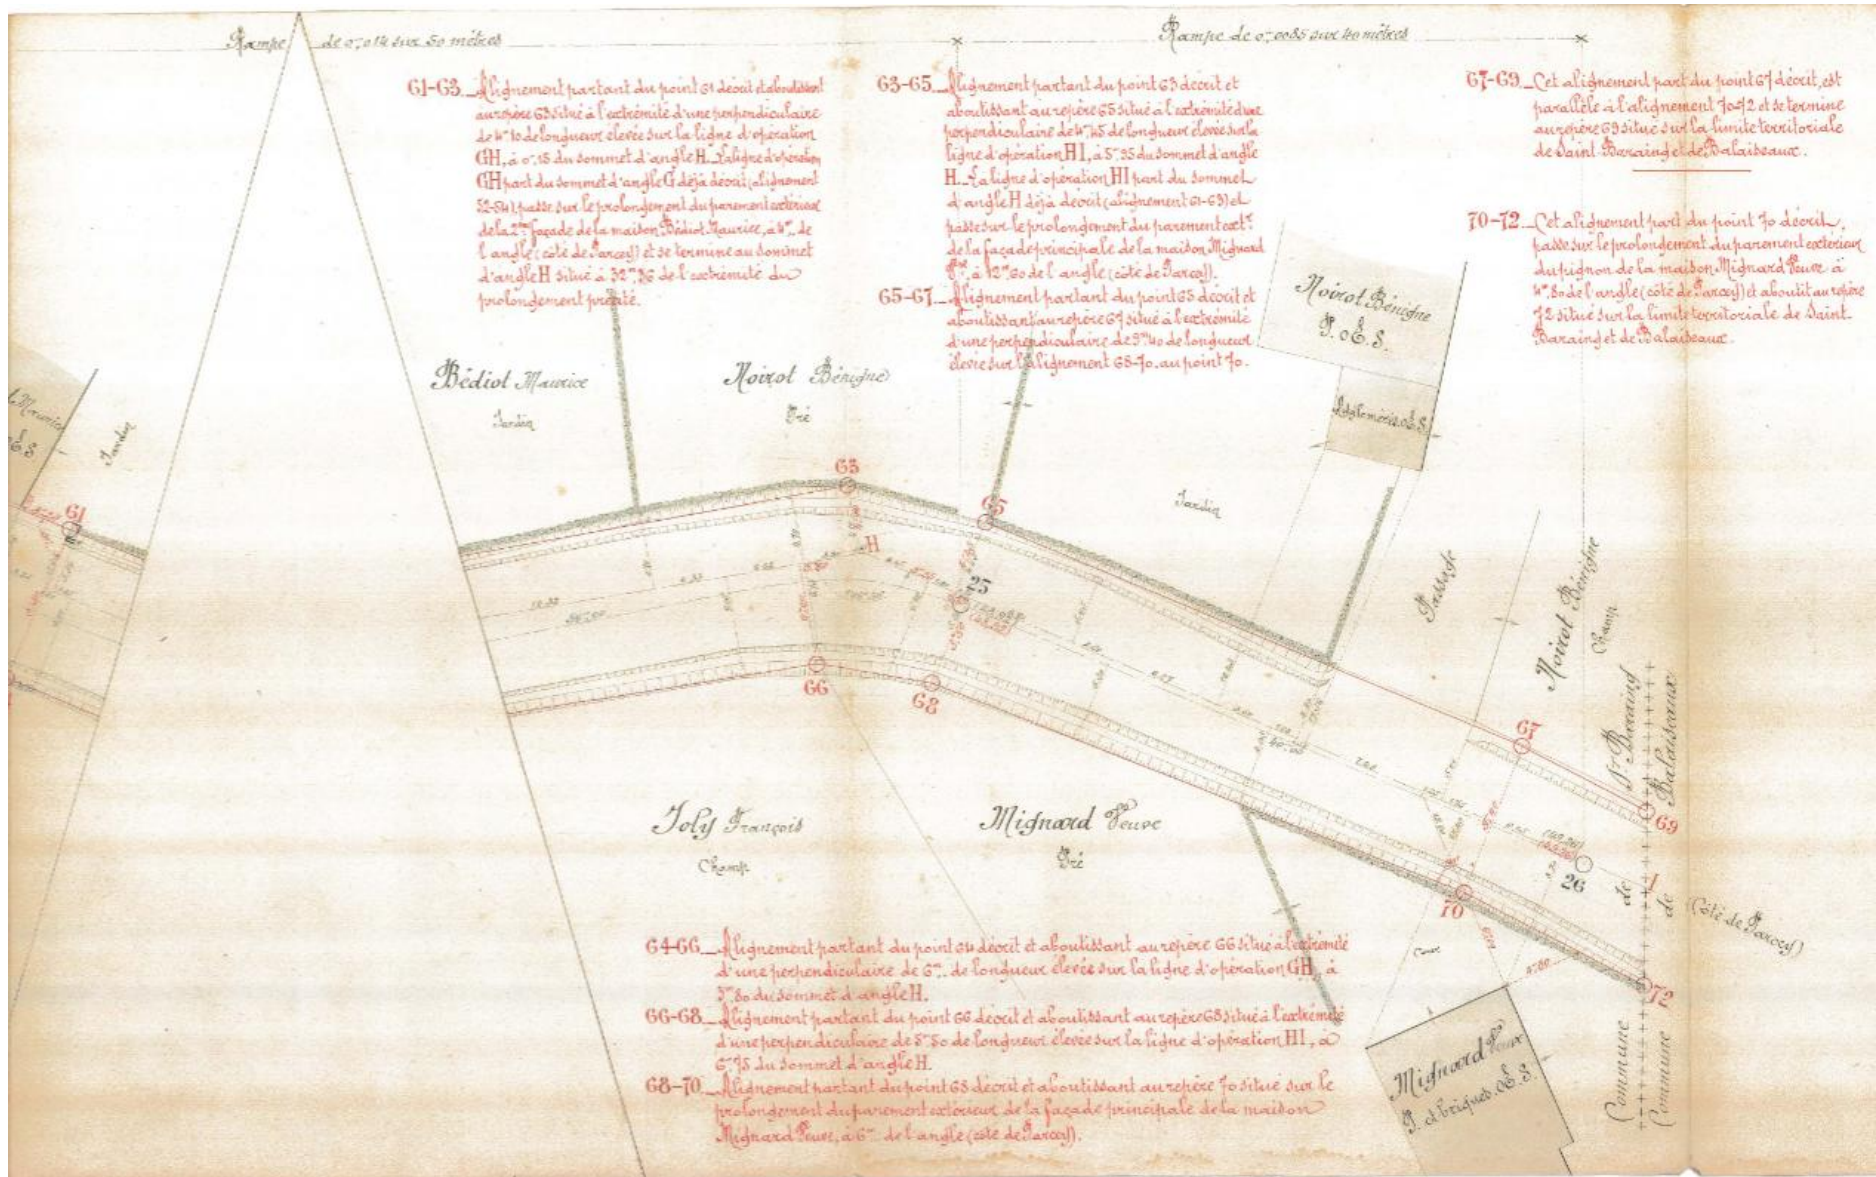 Rampe de 0,m014 sur 50 mètres
Rampe de 0,m0085 sur 40 mètres
61-63_Alignement partant du point 61 décrit et aboutissant
au repère 63 situé à l'extrémité d'une perpendiculaire
de 4m,10 de longueur élevée sur la ligne d'opération
GH, à 0m,15 du sommet d'angle H._La ligne d'opération
GH part du sommet d'angle G déjà décrit (alignement
52-54), passe sur le prolongement du parement extérieur
de la 2me façade de la maison Bédiot Maurice, à 4m, de
l'angle (côté de Parcey) et se termine au sommet
d'angle H situé à 32m,36 de l'extrémité du
prolongement précité.
63-65_Alignement partant du point 63 décrit et
aboutissant au repère 65 situé à l'extrémité d'une
perpendiculaire de 4m,45 de longueur élevée sur la
ligne d'opération HI, à 5m,95 du sommet d'angle
H._La ligne d'opération HI part du sommet
d'angle H déjà décrit (alignement 61-63) et
passe sur le prolongement du parement extr
de la façade principale de la maison Mignard
à 12m,60 de l'angle (côté de Parcey).
65-67_Alignement partant du point 65 décrit et
aboutissant au repère 67 situé à l'extrémité
d'une perpendiculaire de 9m,40 de longueur
élevée sur l'alignement 68-70, au point 70.
67-69_Cet alignement part du point 67 décrit, est
parallèle à l'alignement 70-72 et se termine
au repère 69 situé sur la limite territoriale
de Saint-Baraing et de Balaiseaux.
70-72_Cet alignement part du point 70 décrit,
passe sur le prolongement du parement extérieur
du pignon de la maison Mignard Veuve à
4m,80 de l'angle (côté de Parcey) et aboutit au repère
72 situé sur la limite territoriale de Saint-
Baraing et de Balaiseaux.
Maurice
o.E.S.
Jardin
61
Bédiot Maurice
Jardin
Noirot Bénigne
Pré
Noirot Bénigne
P. o.E.S.
Agglomérés.o.E.S.
Jardin
Passage
Noirot Bénigne
Champ
63
H
65
25
66
68
67
69
70
26
I
72
40.00
4.80
Joly François
Champ
Mignard Veuve
Pré
Cour
Mignard Veuve
P. et briques.o.E.S.
(Côté de Parcey)
Commune de St Baraing
Commune de Balaiseaux
64-66_Alignement partant du point 64 décrit et aboutissant au repère 66 situé à l'extrémité
d'une perpendiculaire de 6m,_ de longueur élevée sur la ligne d'opération GH, à
3m,80 du sommet d'angle H.
66-68_Alignement partant du point 66 décrit et aboutissant au repère 68 situé à l'extrémité
d'une perpendiculaire de 5m,50 de longueur élevée sur la ligne d'opération HI, à
6m,75 du sommet d'angle H.
68-70_Alignement partant du point 68 décrit et aboutissant au repère 70 situé sur le
prolongement du parement extérieur de la façade principale de la maison
Mignard Veuve, à 6m,_ de l'angle (côté de Parcey).